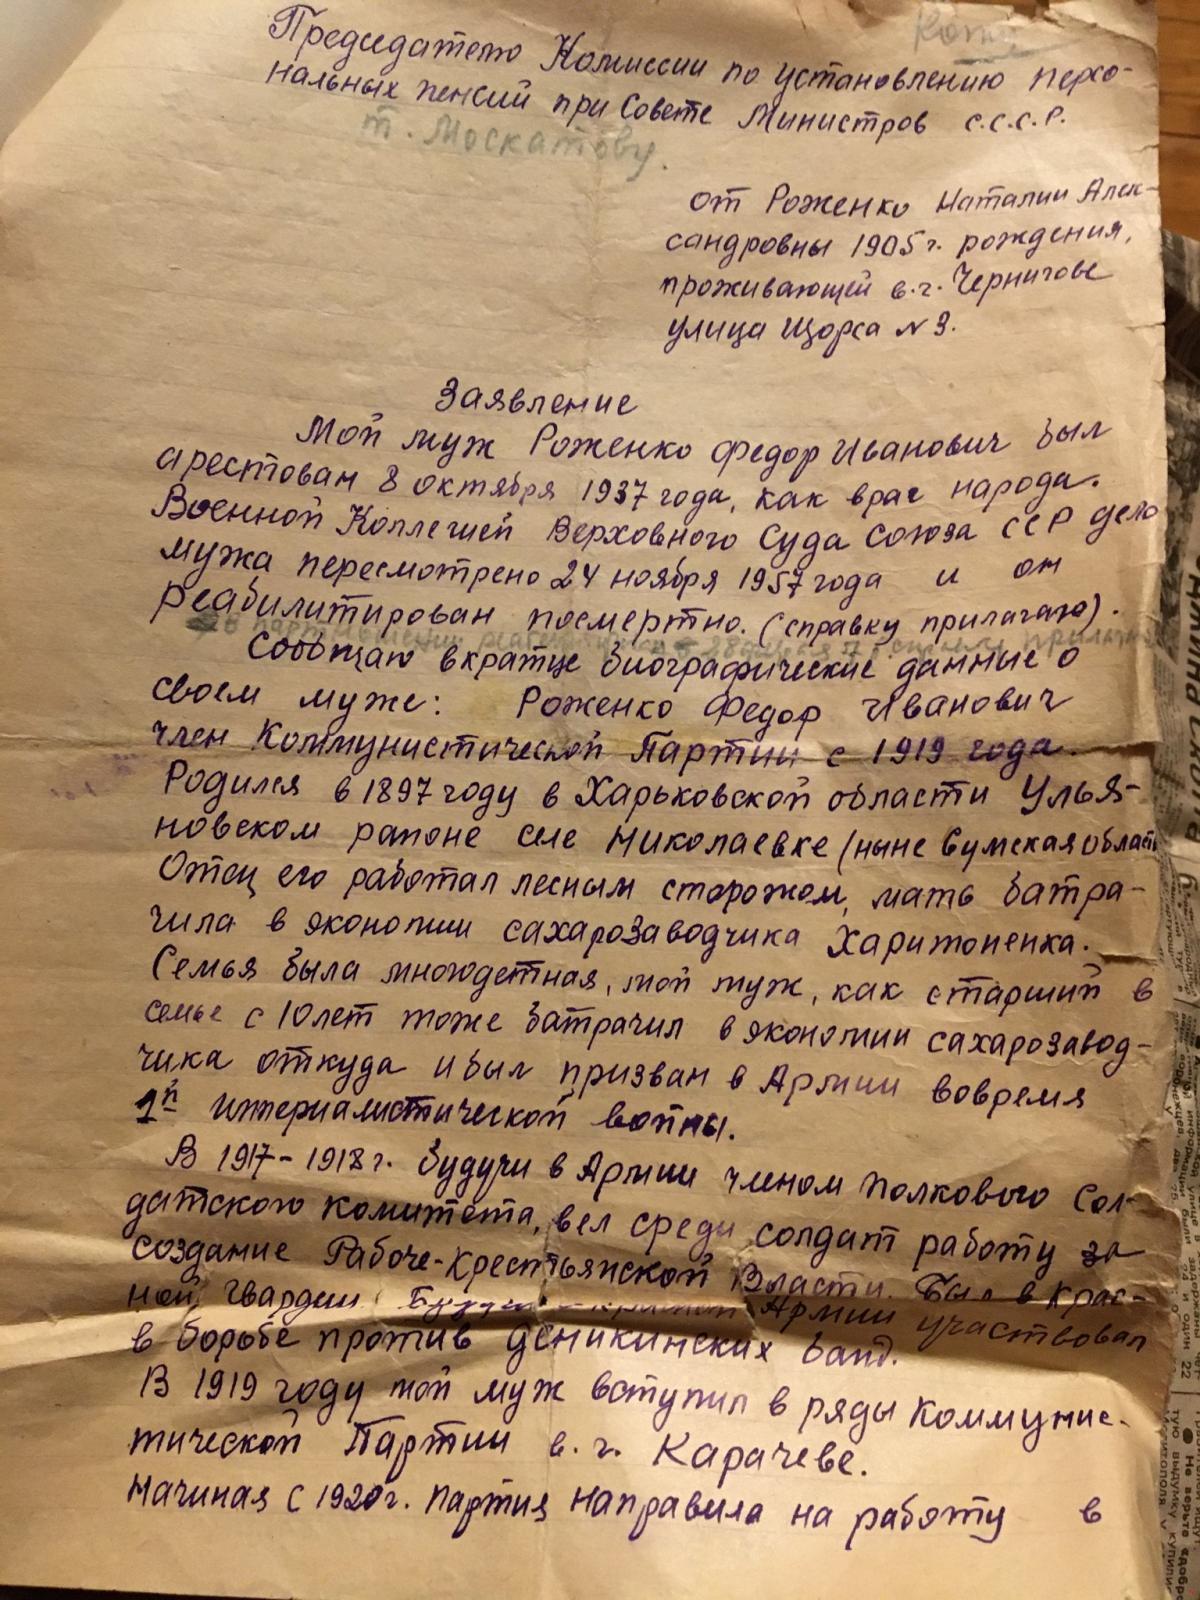 Копия
Председателю Комиссии по установлению персо-
нальных пенсий при Совете Министров С.С.С.Р.
т. Москатову.
от Роженко Наталии Алек-
сандровны 1905 г. рождения,
проживающей в.г. Чернигове
улица Щорса № 3.
Заявление
Мой муж Роженко Федор Иванович был
арестован 8 октября 1937 года, как враг народа.
Военной Коллегией Верховного Суда Союза ССР дело
мужа пересмотрено 24 ноября 1957 года и он
реабилитирован посмертно. (справку прилагаю).
в партийном
Сообщаю вкратце биографические данные о
своем муже: Роженко Федор Иванович
член Коммунистической Партии с 1919 года.
Родился в 1897 году в Харьковской области Улья-
новском районе селе Николаевке (ныне Сумская област
Отец его работал лесным сторожом, мать батра-
чила в экономии сахарозаводчика Харитоненка.
Семья была многодетная, мой муж, как старший в
семье с 10 лет тоже батрачил в экономии сахарозавод-
чика откуда и был призван в Армии вовремя
1й империалистической войны.
В 1917-1918 г. будучи в Армии членом полкового сол-
датского комитета, вел среди солдат работу за
создание Рабоче-крестьянской Власти. Был в Крас-
ной гвардии. Армии участвовал
в борьбе против деникинских банд.
В 1919 году мой муж вступил в ряды Коммунис-
тической Партии в. г. Карачеве.
Начиная с 1920 г. партия направила на работу в